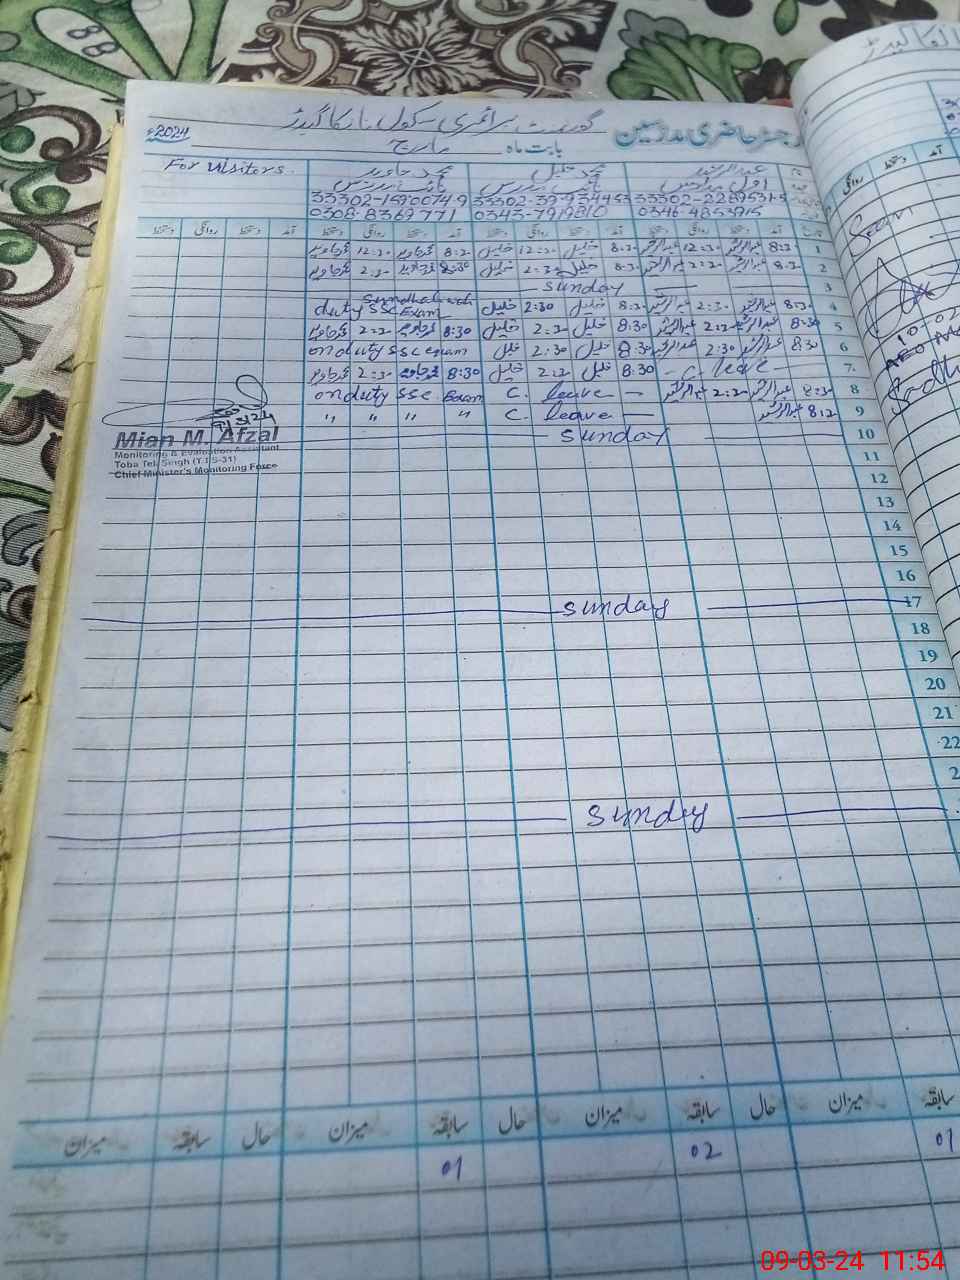 رجسٹر حاضری مدرسین گورنمنٹ پرائمری سکول
بابت ماہ مارچ 2024ء
عبدالرشید محمد خلیل محمد جاوید For visitors.
اول مدرس نائب مدرس نائب مدرس
33302-2289531-5 33302-39-934453 33302-1590074-9
0346-4853915 0343-7919810 0308-8369771
آمد دستخط روانگی دستخط آمد دستخط روانگی دستخط آمد دستخط روانگی دستخط آمد دستخط روانگی دستخط
1 8:30 عبدالرشید 12:30 عبدالرشید 8:30 خلیل 12:30 خلیل 8:30 محمد جاوید 12:30 محمد جاوید
2 8:30 عبدالرشید 2:30 عبدالرشید 8:30 خلیل 2:30 خلیل 8:30 محمد جاوید 2:30 محمد جاوید
3 Sunday
4 8:30 عبدالرشید 2:30 عبدالرشید 8:30 خلیل 2:30 خلیل duty SSC Exam
5 8:30 عبدالرشید 2:30 عبدالرشید 8:30 خلیل 2:30 خلیل 8:30 محمد جاوید 2:30 محمد جاوید
6 8:30 عبدالرشید 2:30 عبدالرشید 8:30 خلیل 2:30 خلیل on duty SSC exam
7 - C. leave - 8:30 خلیل 2:30 خلیل 8:30 محمد جاوید 2:30 محمد جاوید
8 8:30 عبدالرشید 2:30 عبدالرشید C. leave - on duty SSC Exam
9 8:30 عبدالرشید C. leave - " " " "
10 Sunday
Mian M. Afzal
Monitoring & Evaluation Assistant
Toba Tek Singh (T.T.S-31)
Chief Minister's Monitoring Force
11
12
13
14
15
16
17 Sunday
18
19
20
21
22
2
Sunday
سابقہ میزان حال سابقہ میزان حال سابقہ میزان حال سابقہ میزان
01 02 01
09-03-24 11:54